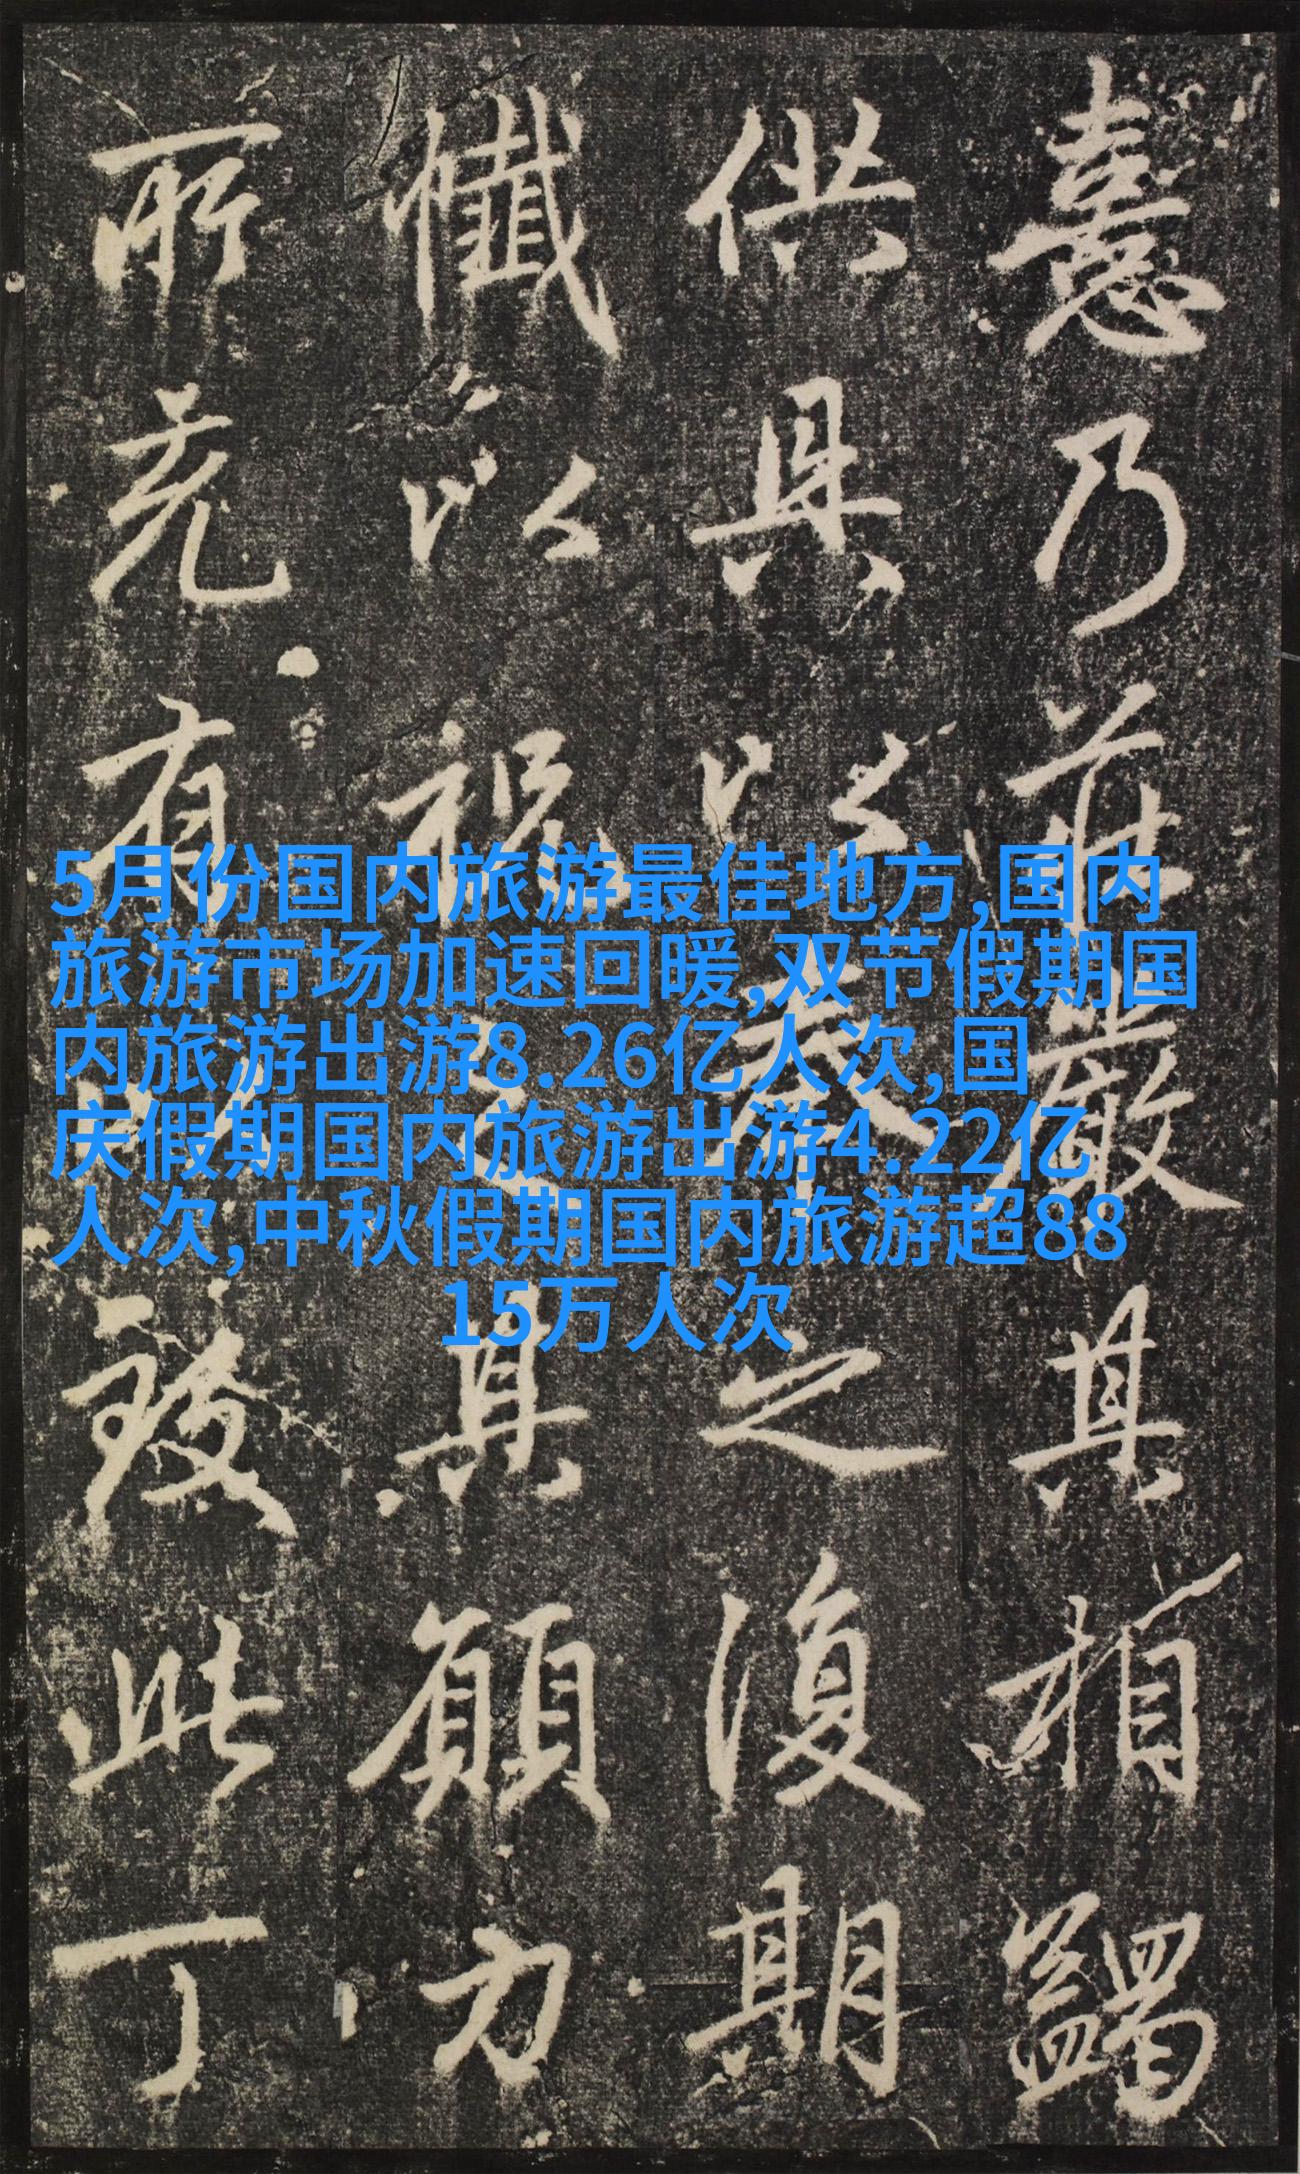 5月份国内旅游最佳地方,国内
旅游市场加速回暖,双节假期国
内旅游出游8.26亿人次,国
庆假期国内旅游出游4.22亿
人次,中秋假期国内旅游超88
15万人次
憙乃莊嚴其相蠲
供具以奉之復期
懺以祝其願方
所有致此丁